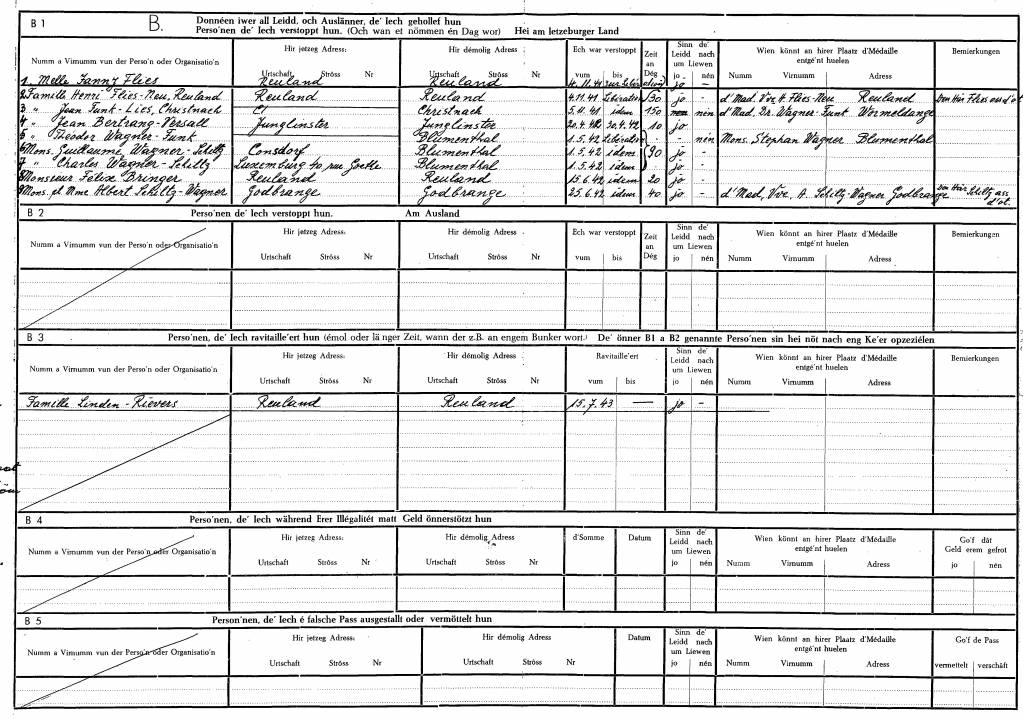 B 1 B. Donnéen iwer all Leidd, och Auslänner, de' Iech gehollef hun
Perso'nen de' Iech verstoppt hun. (Och wan et nömmen én Dag wor) Hei am letzeburger Land
Numm a Vimumm vun der Perso'n oder Organisatio'n Hir jetzeg Adress: Hir démolig Adress Ech war verstoppt Zeit an Dég Sinn de' Leidd nach um Liewen Wien könnt an hirer Plaatz d'Médaille entgé'nt huelen Bemierkungen
Urtschaft Ströss Nr Urtschaft Ströss Nr vum bis jo nén Numm Virnumm Adress
1. Melle Fanny Flies Reuland Reuland jo -
2 Famille Henri Flies-Neu, Reuland Reuland Reuland 4.11.41 Libération 30 jo - d'Mad. Vve. H. Flies-Neu Reuland
3 " Jean Funk-Lies, Christnach Christnach 5.11.41 idem 150 nin d'Mad. Dr. Wagner-Funk Wormeldange
4 " Jean Bertrang-Versall Junglinster Junglinster 20.4.42 30.4.42 10 jo -
5 " Théodor Wagner-Funk Blumenthal 1.5.42 Libération - nin Mons. Stephan Wagner Blumenthal
6 Mons. Guillaume Wagner-Schiltz Consdorf Blumenthal 1.5.42 idem 90 jo -
7 " Charles Wagner-Schiltz Luxemburg 40 rue Goethe Blumenthal 1.5.42 idem jo -
8 Monsieur Felix Bringer Reuland Reuland 15.6.42 idem 20 jo -
9 Mons. et Mme Albert Schiltz-Wagner Godbrange Godbrange 25.6.42 idem 40 jo - d'Mad. Vve. A. Schiltz-Wagner Godbrange Den Här Schiltz ass d'ot.
B 2 Perso'nen de' Iech verstoppt hun. Am Ausland
Numm a Vimumm vun der Perso'n oder Organisatio'n Hir jetzeg Adress: Hir démolig Adress Ech war verstoppt Zeit an Dég Sinn de' Leidd nach um Liewen Wien könnt an hirer Plaatz d'Médaille entgé'nt huelen Bemierkungen
Urtschaft Ströss Nr Urtschaft Ströss Nr vum bis jo nén Numm Virnumm Adress
B 3 Perso'nen, de' Iech ravitaille'ert hun (émol oder lä nger Zeit, wann der z.B. an engem Bunker wort.) De' önner B1 a B2 genannte Perso'nen sin hei nöt nach eng Ke'er opzeziélen
Numm a Vimumm vun der Perso'n oder Organisatio'n Hir jetzeg Adress: Hir démolig Adress Ravitaille'ert Sinn de' Leidd nach um Liewen Wien könnt an hirer Plaatz d'Médaille entgé'nt huelen Bemierkungen
Urtschaft Ströss Nr Urtschaft Ströss Nr vum bis jo nén Numm Virnumm Adress
Famille Linden-Rievers Reuland Reuland 15.7.43 — jo -
B 4 Perso'nen, de' Iech während Erer Illégalitét matt Geld önnerstötzt hun
Numm a Vimumm vun der Perso'n oder Organisatio'n Hir jetzeg Adress: Hir démolig Adress d'Somme Datum Sinn de' Leidd nach um Liewen Wien könnt an hirer Plaatz d'Médaille entgé'nt huelen Go'f dât Geld erem gefrot
Urtschaft Ströss Nr Urtschaft Ströss Nr jo nén Numm Virnumm Adress jo nén
B 5 Person'nen, de' Iech é falsche Pass ausgestallt oder vermöttelt hun
Numm a Vimumm vun der Perso'n oder Organisatio'n Hir jetzeg Adress: Hir démolig Adress Datum Sinn de' Leidd nach um Liewen Wien könnt an hirer Plaatz d'Médaille entgé'nt huelen Go'f de Pass
Urtschaft Ströss Nr Urtschaft Ströss Nr jo nén Numm Virnumm Adress vermettelt verschäft